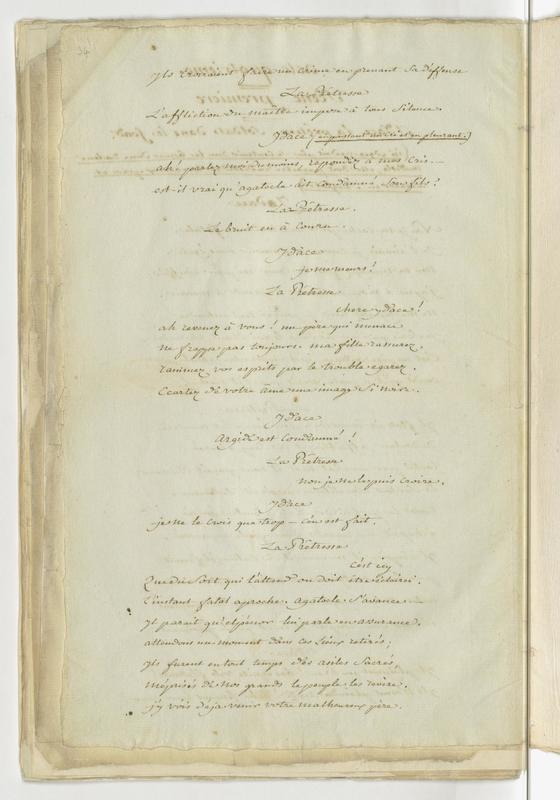 34
Ils croiraient faire un crime en prenant sa deffense
La Prêtresse
L'affliction du maitre impose à tous silence.
Ydace (en pleurant.)
ah! parlez moi du moins, repondez à mes cris....
est-il vrai qu'agatocle ait condamné son fils?
La Prêtresse.
Le bruit en à couru.
Ydace
je me meurs!
La Prêtresse
chere ydace!
ah revenez à vous! un père qui menace
ne frappe pas toujours. ma fille rassurez,
ranimez vos esprits par le trouble egarez.
Ecartez de votre âme une image si noire.
Ydace
argide est condamné!
La Prêtresse
non je ne le puis croire.
Ydace
je ne le crois que trop — c'en est fait.
La Prêtresse
C'est icy
Que du sort qui l'attend on doit être éclairci.
L'instant fatal aproche. agatocle s'avance...
Il parait qu'elpénor lui parle en assurance.
attendons un moment dans ces lieux retirés;
Ils furent en tout temps des asiles sacrés,
méprisés de nos grands le peuple les revère.
j'y vois deja venir votre malheureux père.